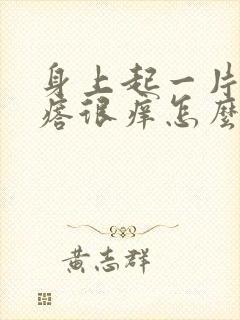 身上起一片
痞很痒怎麽
黄志群